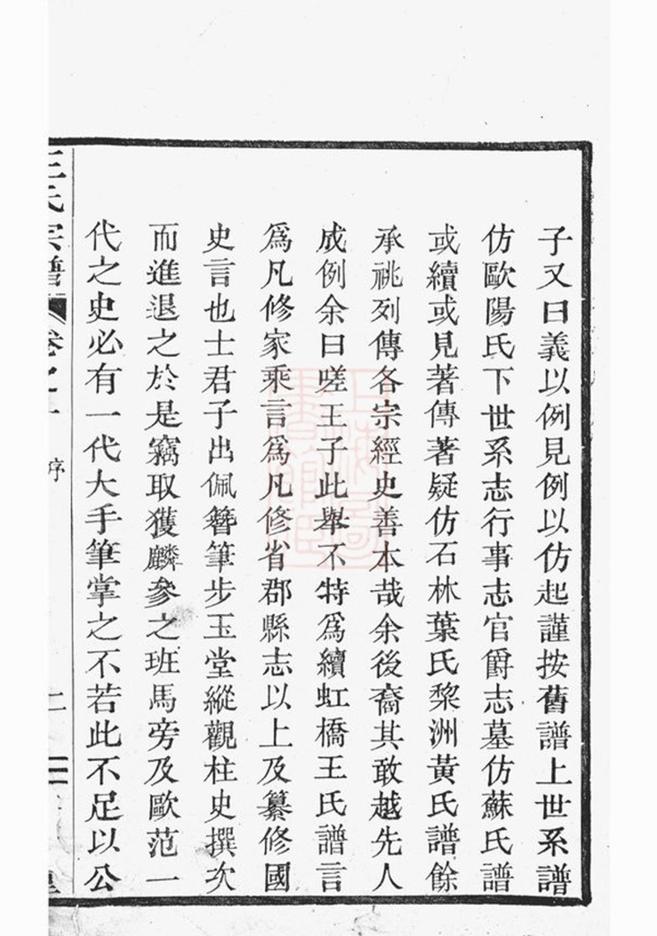 子又曰義以例見例以仿起謹按舊譜上世系譜
仿歐陽氏下世系志行事志官爵志墓仿蘇氏譜
或續或見著傳著疑仿石林葉氏黎洲黃氏譜餘
承祧列傳各宗經史善本哉余後裔其敢越先人
成例余曰嗟王子此舉不特為續虹橋王氏譜言
爲凡修家乘言爲凡修省郡縣志以上及纂修國
史言也士君子出佩簪筆步玉堂縱觀柱史撰次
而進退之於是竊取獲麟參之班馬旁及歐范一
代之史必有一代大手筆掌之不若此不足以公
王氏宗譜 卷之 序 二